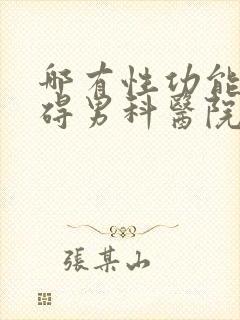 哪有性功能
碍男科醫院
張某山